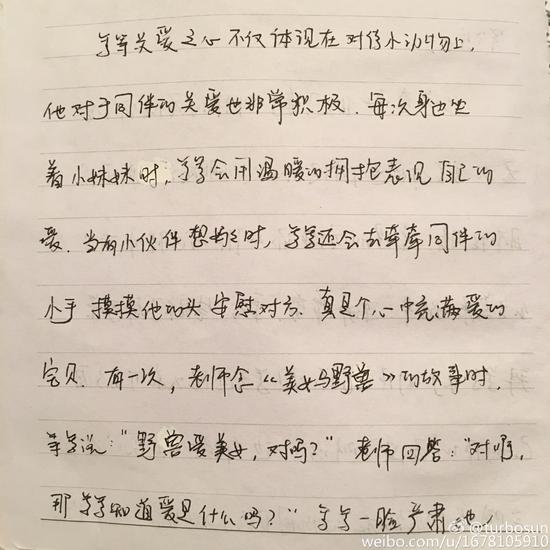 关爱之心不仅体现在对待小动物上,
他对于同伴的关爱也非常积极. 每次身边坐
着小妹妹时, 会用温暖的拥抱表现自己的
爱. 当有小伙伴想妈妈时, 还会去牵牵同伴的
小手 摸摸他的头 安慰对方. 真是个心中充满爱的
宝贝. 有一次, 老师念《美女与野兽》的故事时,
说:"野兽爱美女, 对吗?" 老师回答:"对啊,
那 知道爱是什么吗?" 一脸严肃地
@turbosun
weibo.com/u/1678105910